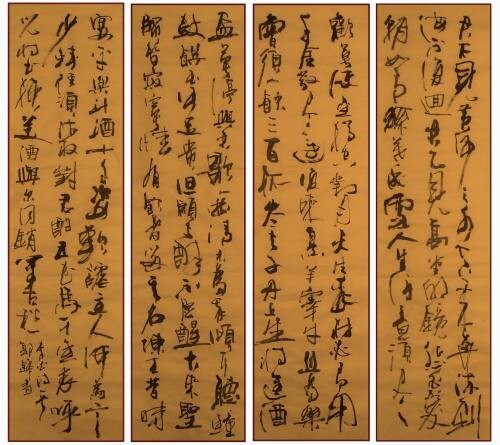 君不見黃河之水天上來奔流到
海不復迴君不見高堂明鏡悲白髮
朝如青絲暮成雪人生得意須盡
歡莫使金樽空對月天生我材必有用
千金散盡還復來烹羊宰牛且為樂
會須一飲三百杯岑夫子丹丘生將進酒
盃莫停與君歌一曲請君為我傾耳聽鐘
鼓饌玉何足貴但願長醉不願醒古來聖
賢皆寂寞惟有飲者留其名陳王昔時
宴平樂斗酒十千恣歡謔主人何為言
少錢徑須沽取對君酌五花馬千金裘呼
兒將出換美酒與爾同銷萬古愁
李白詩